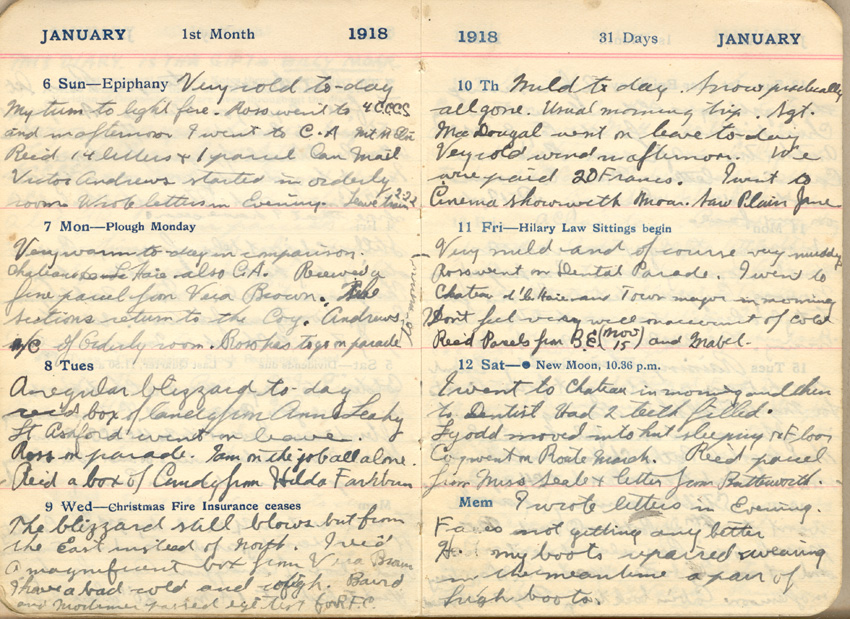 JANUARY 1st Month 1918
6 Sun—Epiphany Very cold to-day
My turn to light fire. Ross went to 4 CCCS
and in afternoon I went to C.A
Recd 14 letters & 1 parcel Can Mail
Victor Andrews started in orderly
room. Wrote letters in Evening. Leave train
7 Mon—Plough Monday
Very warm to-day in comparison.
also C.A. Received a
fine parcel from Vera Brown.
sections return to the Coy. Andrews
i/c of Orderly room. Ross has to go on parade
to-morrow
8 Tues
A regular blizzard to-day
recd box of candy from Anna Leahy
Lt Ashford went on leave.
Ross on parade. I am on the job all alone.
Recd a box of Candy from Hilda
9 Wed—Christmas Fire Insurance ceases
The blizzard still blows but from
the East instead of North. I rec'd
a magnificent box from Vera Brown
I have a bad cold and cough. Baird
and Mortimer passed eye test for R.F.C.
1918 31 Days JANUARY
10 Th Mild to day. Snow practically
all gone. Usual morning trip. Sgt.
MacDougal went on leave to-day
Very cold wind in afternoon. We
were paid 20 Francs. I went to
Cinema show with Moar. Saw Plain Jane
11 Fri—Hilary Law Sittings begin
Very mild and of course very muddy
Ross went on Dental Parade. I went to
Chateau d' la Haie and Town mayor in morning
Don't feel very well on account of cold
Recd Parcels from B.E. (Nov 15) and Mabel.
12 Sat—● New Moon, 10.36 p.m.
I went to Chateau in morning and then
to Dentist Had 2 teeth filled.
moved into hut sleeping on Floor
Coy went on Route March. Recd parcel
from Miss Seale & letter from Butterworth.
Mem I wrote letters in Evening.
not getting any better
my boots repaired & wearing
in the meantime a pair of
high boots.